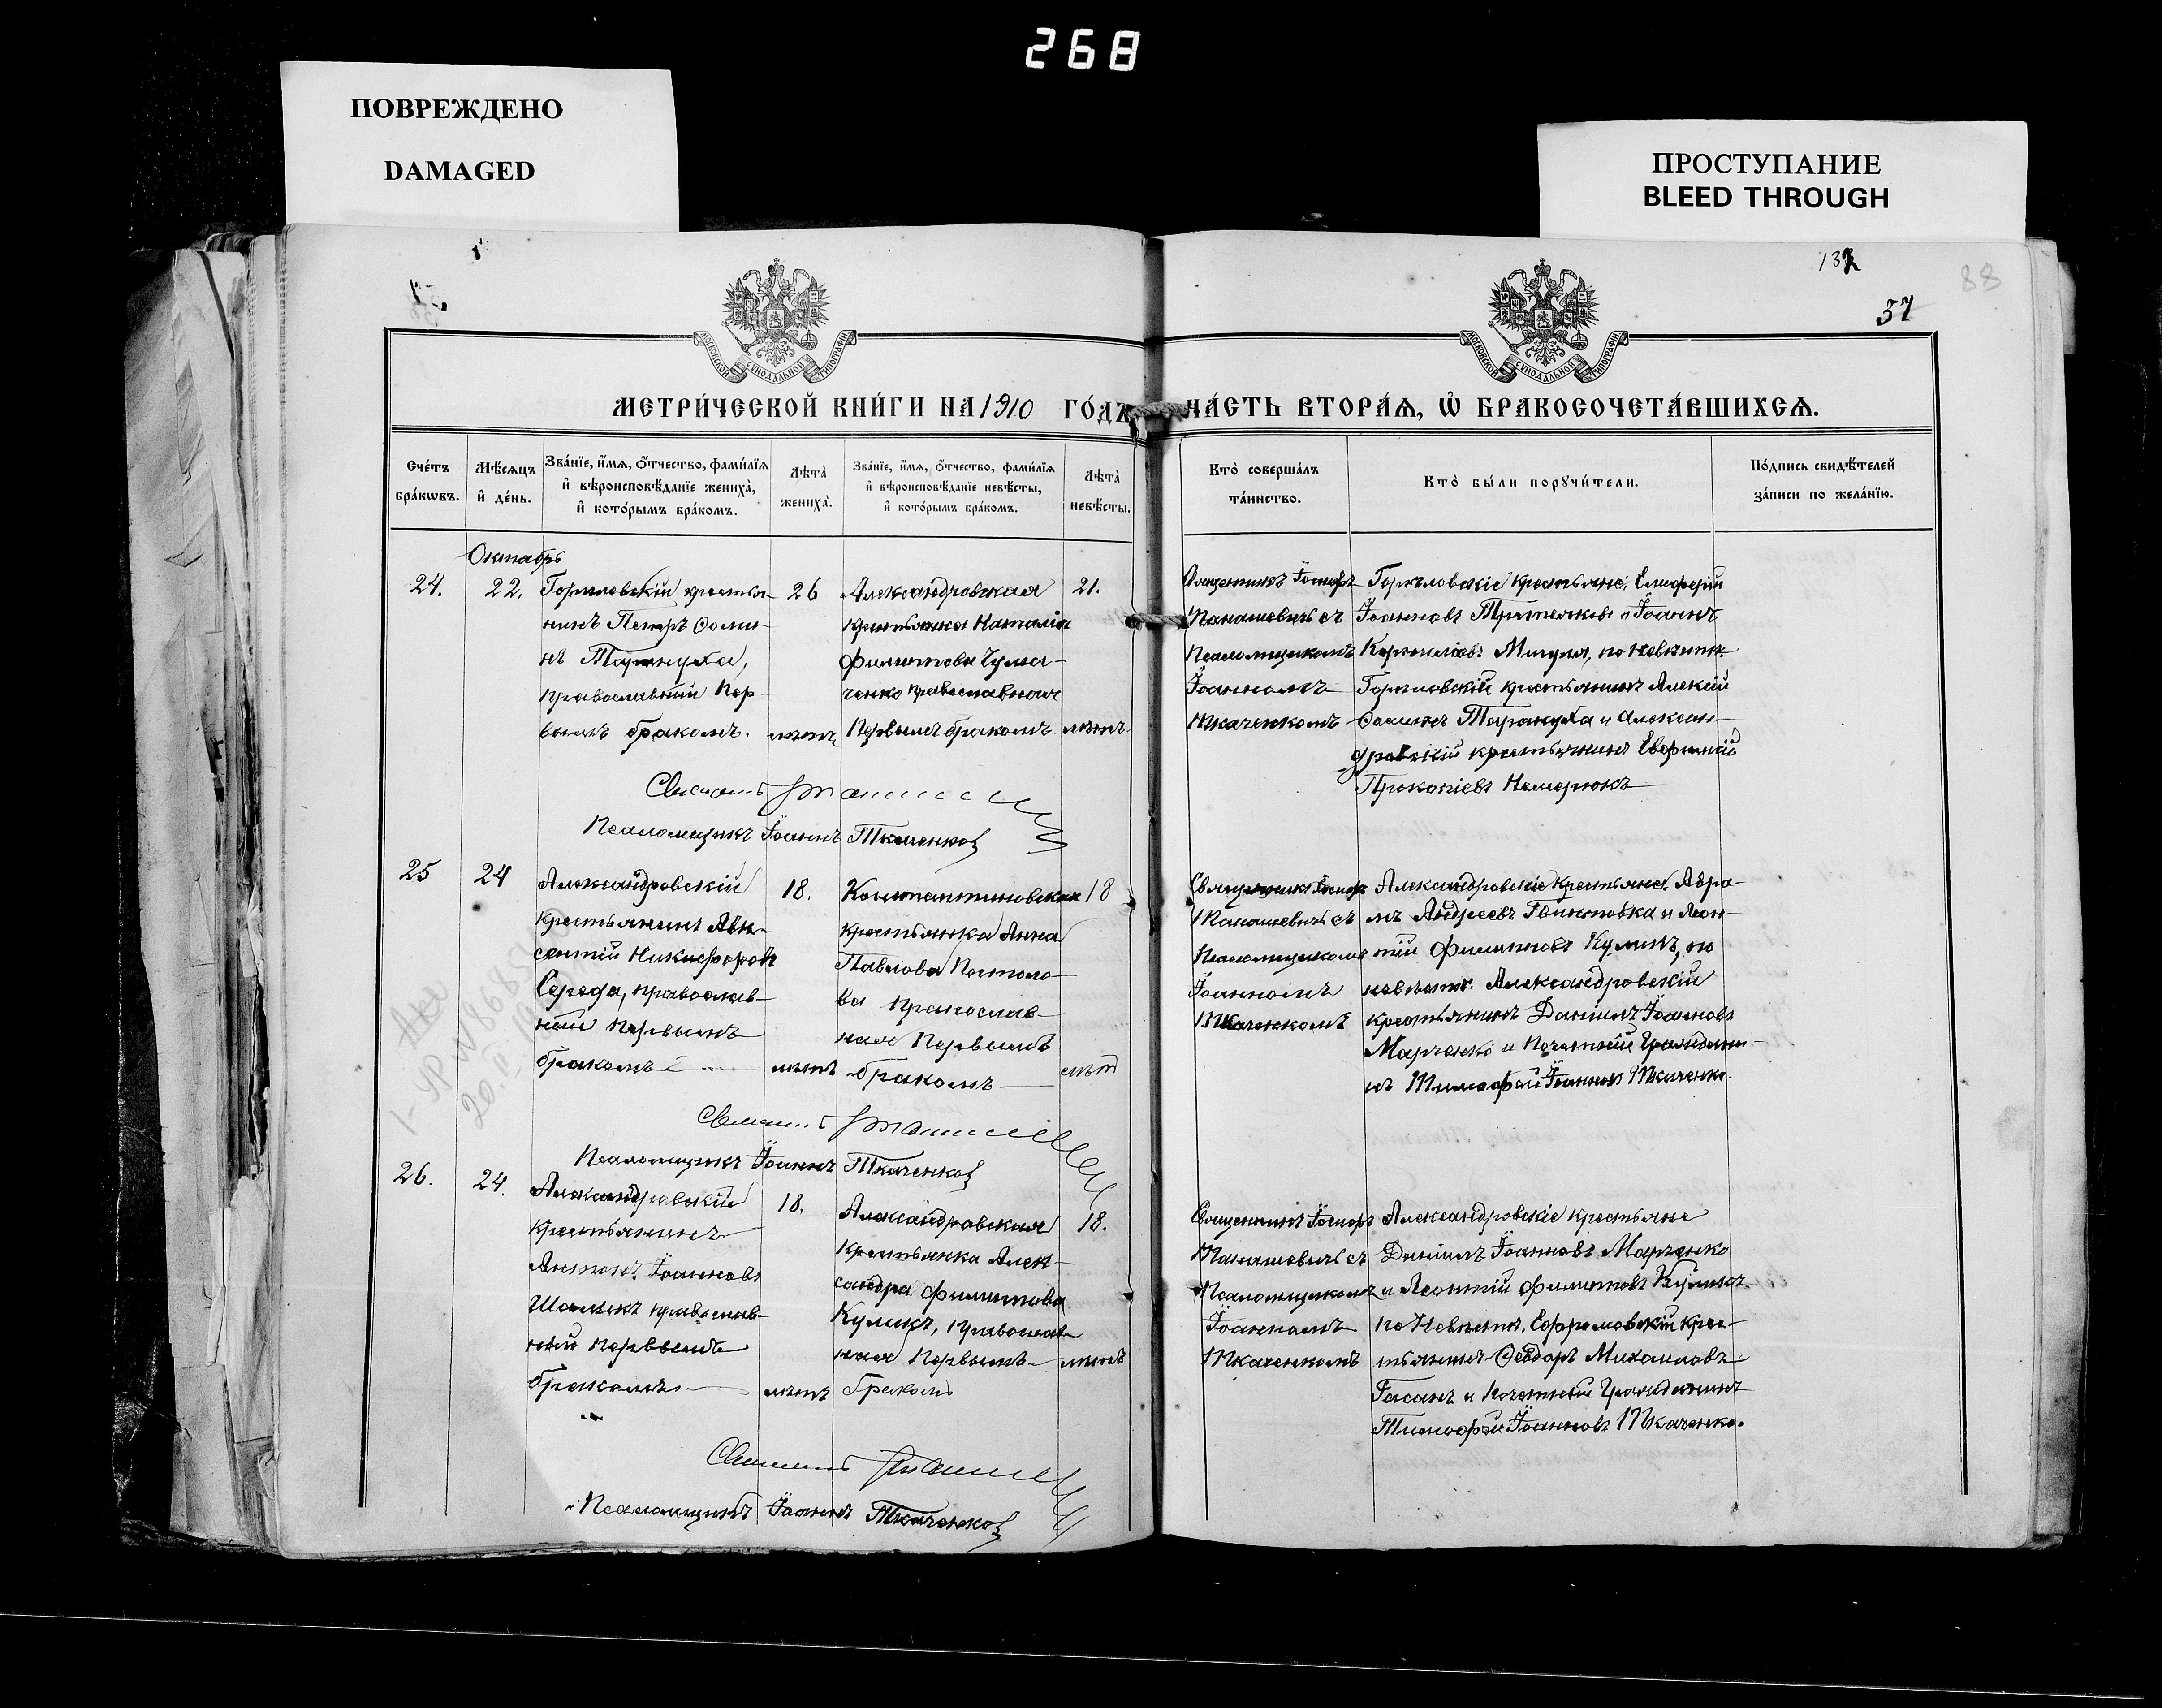 268
ПОВРЕЖДЕНО
DAMAGED
ПРОСТУПАНИЕ
BLEED THROUGH
132
88
37
МОСКОВСКОЙ СѴНОДАЛЬНОЙ ТИПОГРАФІИ
МОСКОВСКОЙ СѴНОДАЛЬНОЙ ТИПОГРАФІИ
МЕТРИ́ЧЕСКОЙ КНИ́ГИ НА 1910 ГО́ДЪ,
ЧА́СТЬ ВТОРА́Я, Ѡ҆ БРАКОСОЧЕТА́ВШИХСЯ.
Сче́тъ
бра́кѡвъ.
Мѣ́сяцъ
и҆ де́нь.
Зва́нїе, и҆́мя, ѻ҆́тчество, фами́лїя
и҆ вѣроисповѣ́данїе жениха̀,
и҆ кото́рымъ бра́комъ.
Лѣта̀
жениха̀.
Зва́нїе, и҆́мя, ѻ҆́тчество, фами́лїя
и҆ вѣроисповѣ́данїе невѣ́сты,
и҆ кото́рымъ бра́комъ.
Лѣта̀
невѣ́сты.
Кто̀ соверша́лъ
та́инство.
Кто̀ бы́ли порꙋчи́тели.
По́дпись свидѣ́телей
за́писи по жела́нїю.
Октябрь
24.
22.
Гориловскій крестья-
нинъ Петръ Ѳоми-
нъ Тарануха,
православный пер-
вымъ бракомъ.
26
лѣтъ
Александровская
крестьянка Наталія
Филиппова Чума-
ченко православная
первымъ бракомъ
21.
лѣтъ.
Священникъ Іосифъ
Панашевичъ съ
Псаломщикомъ
Іоанномъ
Ткаченкомъ
Гориловскіе крестьяне, Елиферій
Іоанновъ Третьяковъ и Іоаннъ
Корниліевъ Мигуля, по невѣстѣ
Гориловскій крестьянинъ Алексій
Ѳоминъ Тарануха и Алексан-
дровскій крестьянинъ Евфимій
Прокопіевъ
Псаломщикъ Іоаннъ Ткаченко
25
24
Александровскій
крестьянинъ Авк-
сентій Никифоровъ
Середа, православ-
ный первымъ
бракомъ
18.
лѣтъ
Константиновская
крестьянка Анна
Павлова Постоло-
ва православ-
ная первымъ
бракомъ
18
лѣтъ
Священникъ Іосифъ
Панашевичъ съ
Псаломщикомъ
Іоанномъ
Ткаченкомъ
Александровскіе крестьяне, Авра-
мъ Андреевъ и Леон-
тій Филипповъ Куликъ, по
невѣстѣ Александровскій
крестьянинъ Даніилъ Іоанновъ
Марченко и Почетный Граждани-
нъ Тимофей Іоанновъ Ткаченко.
Псаломщикъ Іоаннъ Ткаченко
26.
24.
Александровскій
крестьянинъ
Антонъ Іоанновъ
православ-
ный первымъ
бракомъ
18.
лѣтъ
Александровская
крестьянка Алек-
сандра Филиппова
Куликъ, православ-
ная первымъ
бракомъ
18.
лѣтъ
Священникъ Іосифъ
Панашевичъ съ
Псаломщикомъ
Іоанномъ
Ткаченкомъ
Александровскіе крестьяне
Даніилъ Іоанновъ Марченко
и Леонтій Филипповъ Куликъ
по невѣстѣ, Ефремовскій крес-
тьянинъ Ѳеодоръ Михаиловъ
Гасанъ и Почетный Гражданинъ
Тимофей Іоанновъ Ткаченко.
Псаломщикъ Іоаннъ Ткаченко